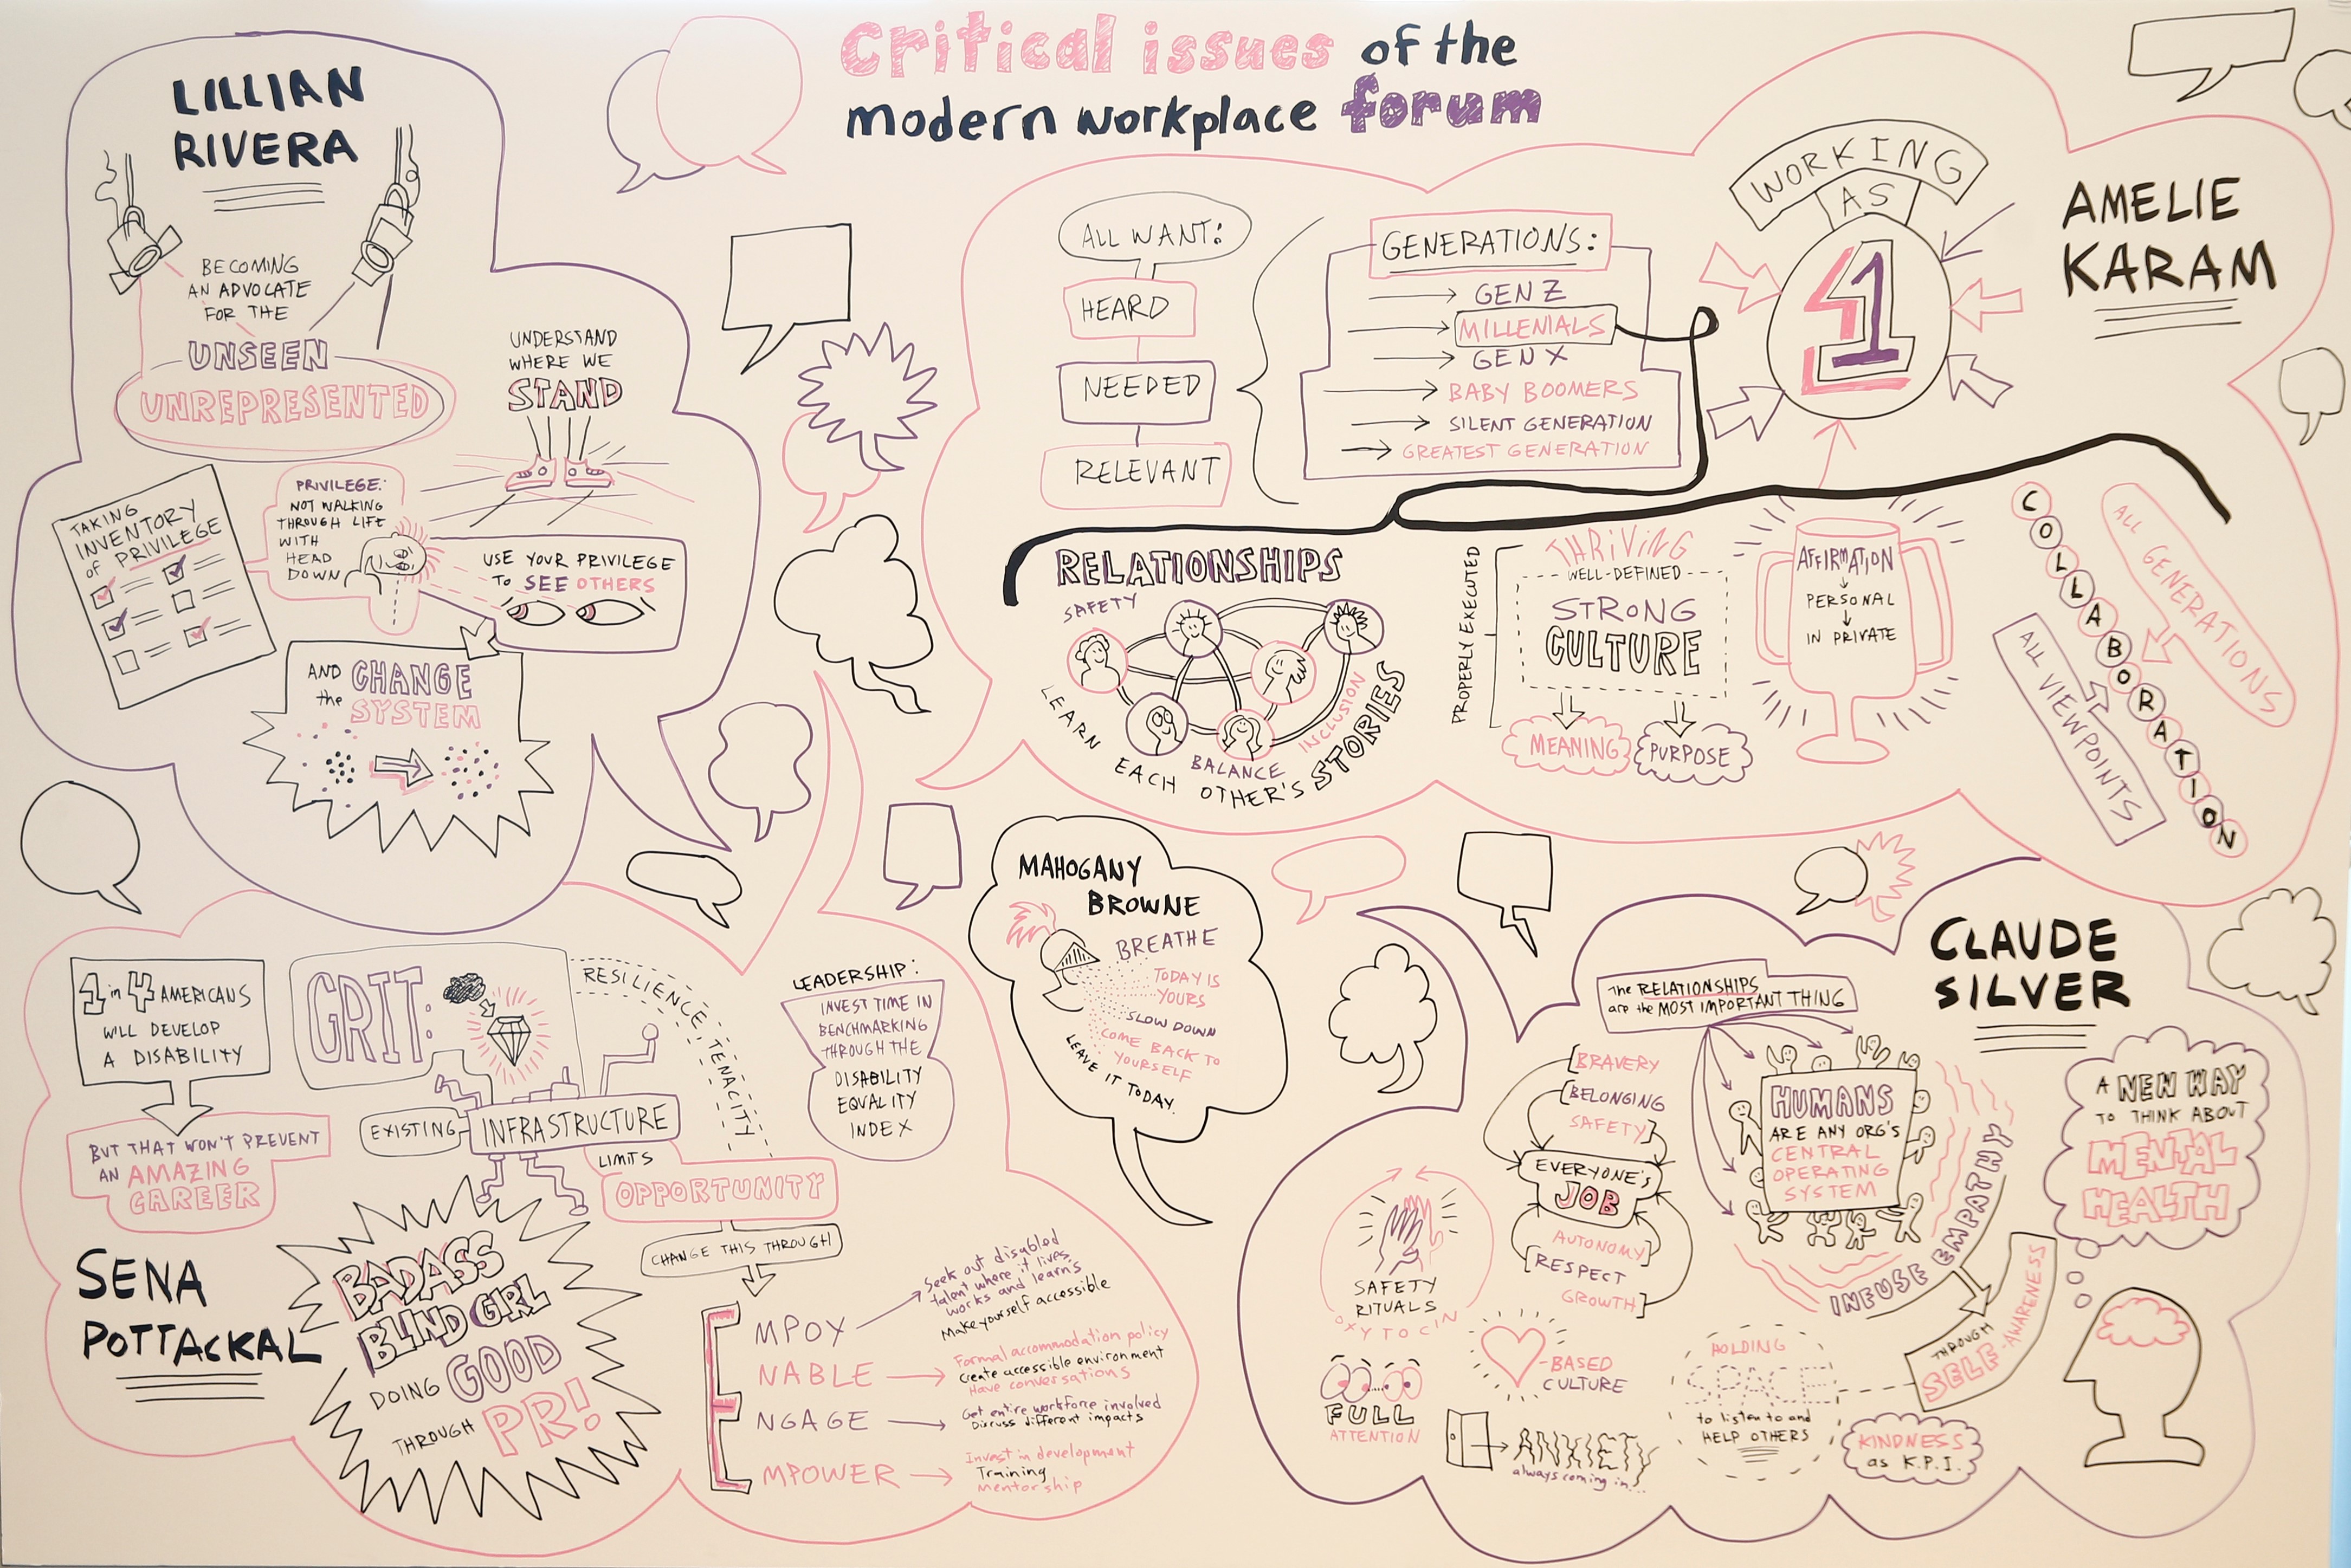 Critical issues of the
modern workplace forum
LILLIAN
RIVERA
BECOMING
AN ADVOCATE
FOR THE
UNSEEN
UNREPRESENTED
UNDERSTAND
WHERE WE
STAND
TAKING
INVENTORY
of PRIVILEGE
PRIVILEGE:
NOT WALKING
THROUGH LIFE
WITH
HEAD
DOWN
USE YOUR PRIVILEGE
TO SEE OTHERS
AND CHANGE
the SYSTEM
AMELIE
KARAM
WORKING
AS
1
ALL WANT:
HEARD
NEEDED
RELEVANT
GENERATIONS:
GEN Z
MILLENIALS
GEN X
BABY BOOMERS
SILENT GENERATION
GREATEST GENERATION
RELATIONSHIPS
SAFETY
INCLUSION
BALANCE
LEARN EACH OTHER'S STORIES
PROPERLY EXECUTED
THRIVING
WELL-DEFINED
STRONG
CULTURE
MEANING
PURPOSE
AFFIRMATION
PERSONAL
IN PRIVATE
COLLABORATION
ALL GENERATIONS
ALL VIEWPOINTS
MAHOGANY
BROWNE
BREATHE
TODAY IS
YOURS
SLOW DOWN
COME BACK TO
YOURSELF
LEAVE IT TODAY.
SENA
POTTACKAL
1 in 4 AMERICANS
WILL DEVELOP
A DISABILITY
BUT THAT WON'T PREVENT
AN AMAZING
CAREER
GRIT:
RESILIENCE, TENACITY
EXISTING
INFRASTRUCTURE
LIMITS
OPPORTUNITY
LEADERSHIP:
INVEST TIME IN
BENCHMARKING
THROUGH THE
DISABILITY
EQUALITY
INDEX
BADASS
BLIND GIRL
DOING GOOD
THROUGH PR!
CHANGE THIS THROUGH
E
MPOY
Seek out disabled
talent where it lives,
works and learn's
Make yourself accessible
NABLE
Formal accommodation policy
Create accessible environment
Have conversations
NGAGE
Get entire workforce involved
Discuss different impacts
MPOWER
Invest in development
Training
Mentorship
CLAUDE
SILVER
The RELATIONSHIPS
are the MOST IMPORTANT THING
BRAVERY
BELONGING
SAFETY
EVERYONE'S
JOB
AUTONOMY
RESPECT
GROWTH
HUMANS
ARE ANY ORG'S
CENTRAL
OPERATING
SYSTEM
INFUSE EMPATHY
THROUGH
SELF-AWARENESS
A NEW WAY
TO THINK ABOUT
MENTAL
HEALTH
SAFETY
RITUALS
OXYTOCIN
FULL
ATTENTION
-BASED
CULTURE
ANXIETY
always coming in...
HOLDING
SPACE
to listen to and
HELP OTHERS
KINDNESS
as K.P.I.